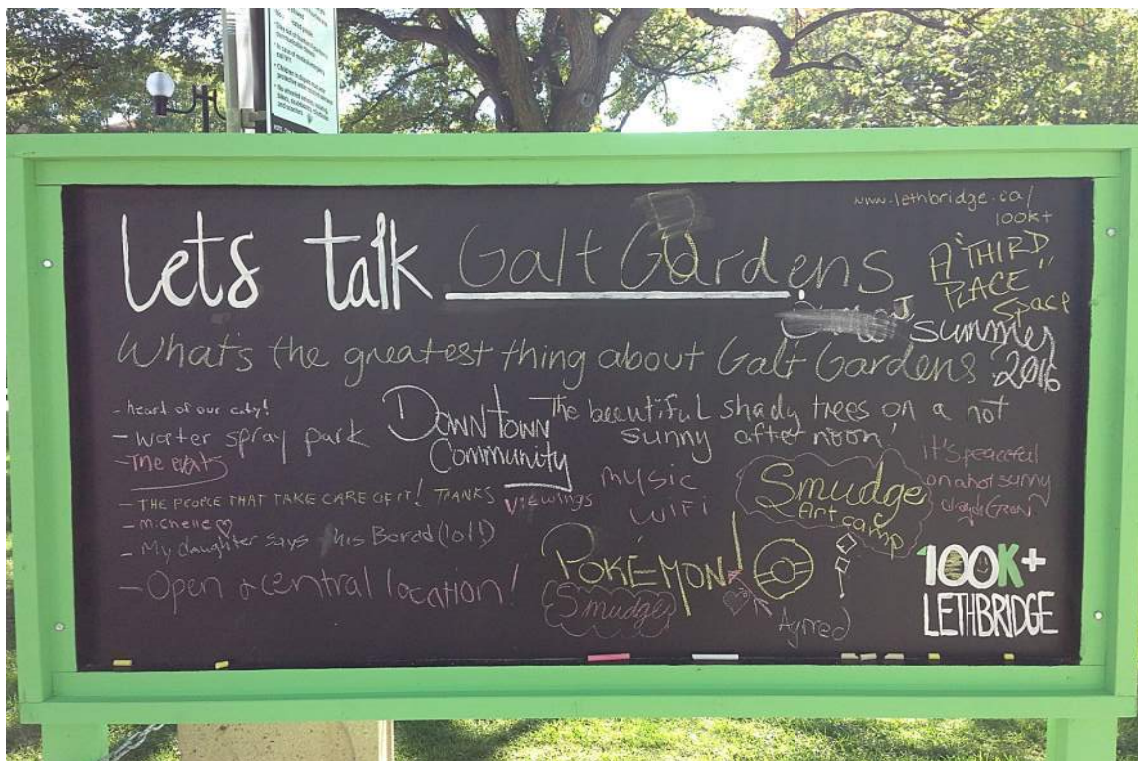 www.lethbridge.ca/
100k+
Lets talk Galt Gardens
A "THIRD
PLACE"
Space
summer
2016
What's the greatest thing about Galt Gardens
- heart of our city!
- water spray park
- The events
- THE PEOPLE THAT TAKE CARE OF IT! THANKS
- michelle ♡
- My daughter says this Bored (lol!)
- Open & central location!
DOWNTOWN
Community
The beautiful shady trees on a hot
sunny afternoon!
viewings
music
WiFi
Smudge
Art camp
it's peaceful
on a hot sunny
POKÉMON!
Smudge
Agreed
100K+
LETHBRIDGE